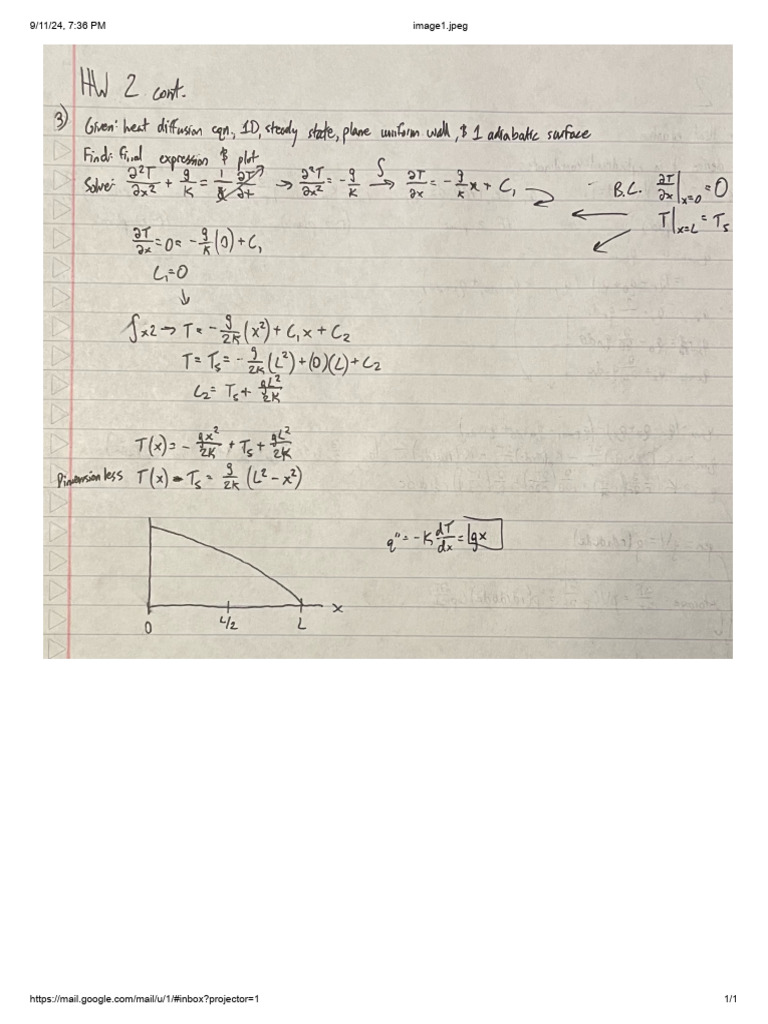 9/11/24, 7:36 PM image1.jpeg
HW 2 cont.
3) Given: heat diffusion eqn., 1D, steady state, plane uniform wall, & 1 adiabatic surface
Find: final expression & plot
Solve: ∂²T/∂x² + g/K = 1/α ∂T/∂t → ∂²T/∂x² = -g/K ∫→ ∂T/∂x = -g/K x + C₁
B.C. ∂T/∂x|x=0 = 0
T|x=L = Ts
∂T/∂x = 0 = -g/K (0) + C₁
C₁ = 0
↓
∫x2 → T = -g/2K (x²) + C₁x + C₂
T = Ts = -g/2K (L²) + (0)(L) + C₂
C₂ = Ts + gL²/2K
T(x) = -gx²/2K + Ts + gL²/2K
Dimensionless T(x) - Ts = g/2K (L² - x²)
q" = -K dT/dx = gx
x
0 L/2 L
https://mail.google.com/mail/u/1/#inbox?projector=1 1/1